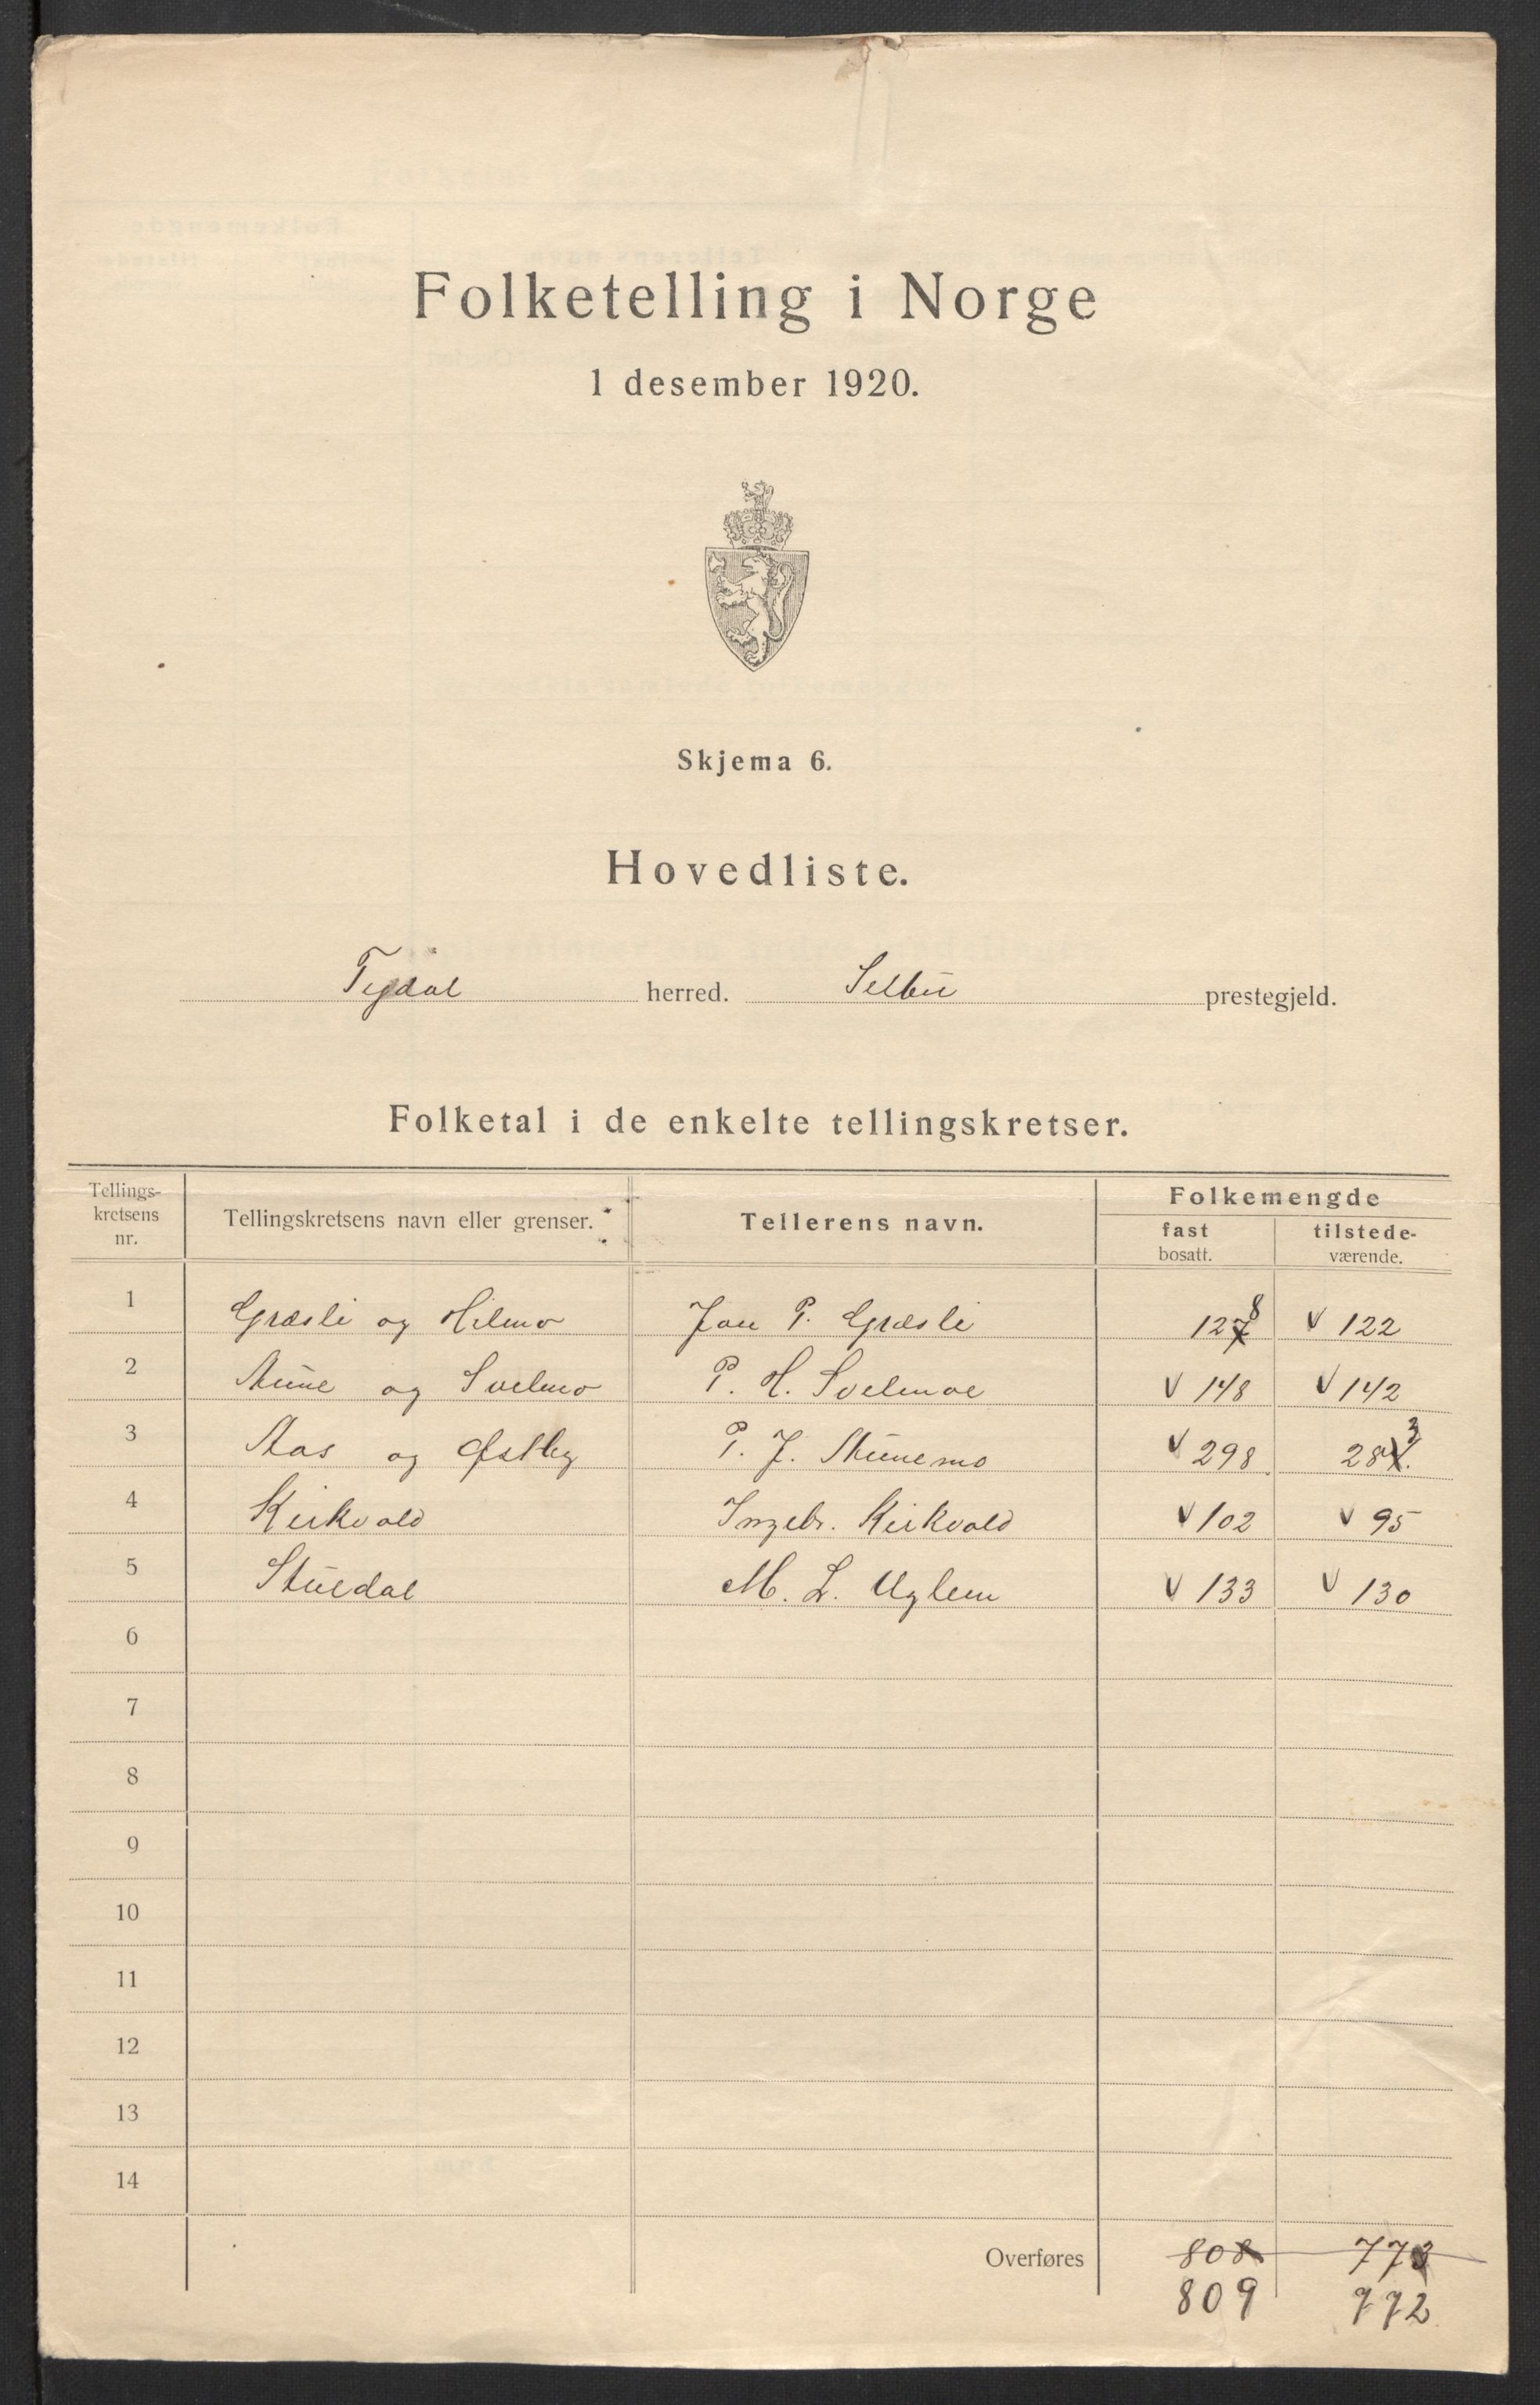 Folketelling i Norge
1 desember 1920.
Skjema 6.
Hovedliste.
Tydal herred. Selbu prestegjeld.
Folketal i de enkelte tellingskretser.
Tellings-
kretsens
nr.
Tellingskretsens navn eller grenser.
Tellerens navn.
Folkemengde
fast
bosatt.
tilstede-
værende.
1 Græsli og Hilmo Jon P. Græsli 127 8 V 122
2 Aune og Svelmo P. H. Svelmoe V 148 V 142
3 Aas og Østby P. J. Aunemo V 298 284 3
4 Kirkvold Ingebr. Kirkvold V 102 V 95
5 Stuedal M. L. Uglem V 133 V 130
6
7
8
9
10
11
12
13
14
Overføres 808 773
809 772